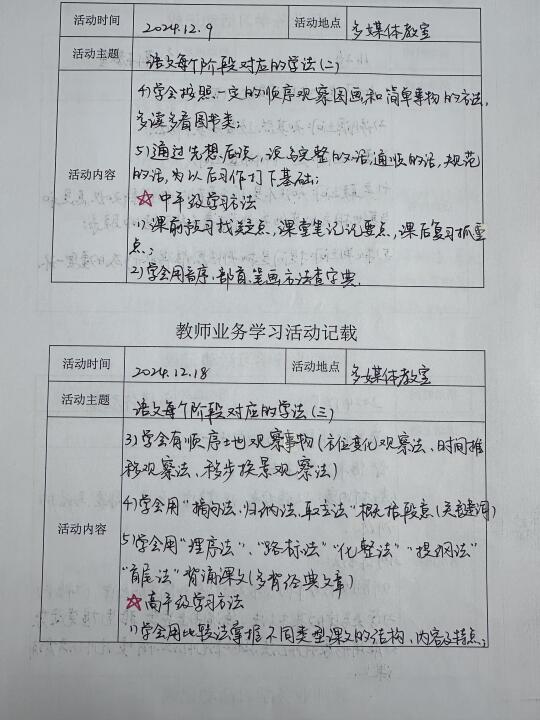 活动时间 2024.12.9 活动地点 多媒体教室
活动主题 语文每个阶段对应的学法(二)
活动内容
4)学会按照一定的顺序观察图画和简单事物的方法,
多读多看图书类;
5)通过先想后说,说完整的话,通顺的话,规范
的话,为以后习作打下基础;
☆中年级学习方法
1)课前预习找疑点,课堂笔记记要点,课后复习抓重
点;
2)学会用音序、部首、笔画方法查字典.
教师业务学习活动记载
活动时间 2024.12.18 活动地点 多媒体教室
活动主题 语文每个阶段对应的学法(三)
活动内容
3)学会有顺序地观察事物(方位变化观察法、时间推
移观察法、移步换景观察法)
4)学会用"摘句法、归纳法、取主法"概括段意(关键词)
5)学会用"理序法"、"路标法""化整法""提纲法"
"首尾法"背诵课文(多背经典文章)
☆高年级学习方法
1)学会用比较法掌握不同类型课文的结构、内容及特点;